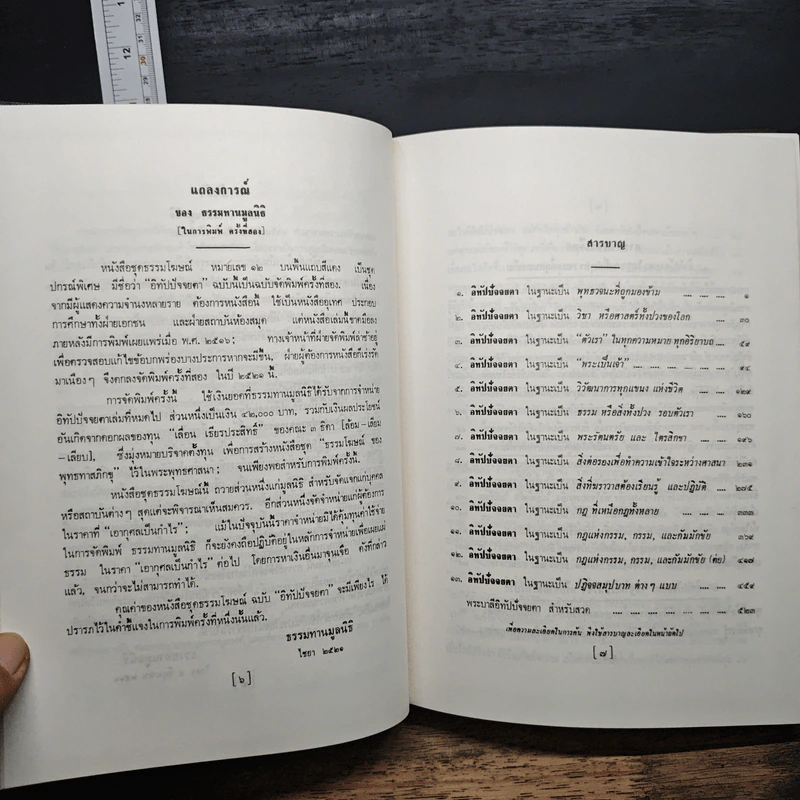 12
31
30
29
แถลงการณ์
ของ ธรรมทานมูลนิธิ
[ในการพิมพ์ ครั้งที่สอง]
หนังสือชุดธรรมโฆษณ์ หมายเลข ๑๒ บนพื้นแถบสีแดง เป็นชุด
ปกรณ์พิเศษ มีชื่อว่า “อิทัปปัจจยตา” ฉบับนี้เป็นฉบับจัดพิมพ์ครั้งที่สอง. เนื่อง
จากมีผู้แสดงความจำนงหลายราย ต้องการหนังสือนี้ ใช้เป็นหนังสืออุเทศ ประกอบ
การศึกษาทั้งฝ่ายเอกชน และฝ่ายสถาบันห้องสมุด แต่หนังสือเล่มนี้ขาดมือลง
ภายหลังมีการพิมพ์เผยแพร่เมื่อ พ.ศ. ๒๕๑๖; ทางเจ้าหน้าที่ฝ่ายจัดพิมพ์ล่าช้าอยู่
เพื่อตรวจสอบแก้ไขข้อบกพร่องบางประการหากจะมีขึ้น, ฝ่ายผู้ต้องการหนังสือก็เร่งรัด
มาเนืองๆ จึงตกลงจัดพิมพ์ครั้งที่สอง ในปี ๒๕๒๑ นี้.
การจัดพิมพ์ครั้งนี้ ใช้เงินยอดที่ธรรมทานมูลนิธิได้รับจากการจำหน่าย
อิทัปปัจจยตาเล่มที่หมดไป ส่วนหนึ่งเป็นเงิน ๔๒,๐๐๐ บาท, รวมกับเงินผลประโยชน์
อันเกิดจากดอกผลของทุน “เลื่อน เธียรประสิทธิ์” ของคณะ ๓ ธิดา [ล้อม–เลี่ยม
–เลียบ]. ซึ่งมุ่งหมายบริจาคตั้งทุน เพื่อการสร้างหนังสือชุด “ธรรมโฆษณ์ ของ
พุทธทาสภิกขุ” ไว้ในพระพุทธศาสนา; จนเพียงพอสำหรับการพิมพ์ครั้งนี้.
หนังสือชุดธรรมโฆษณ์นี้ ถวายส่วนหนึ่งแก่มูลนิธิ สำหรับจัดแจกแก่บุคคล
หรือสถาบันต่างๆ สุดแต่จะพิจารณาเห็นสมควร. อีกส่วนหนึ่งจัดจำหน่ายแก่ผู้ต้องการ
ในราคาที่ “เอากุศลเป็นกำไร”; แม้ในปัจจุบันนี้ราคาจำหน่ายมิได้คุ้มทุนค่าใช้จ่าย
ในการจัดพิมพ์ ธรรมทานมูลนิธิ ก็จะยังคงถือปฏิบัติอยู่ในหลักการจำหน่ายเพื่อเผยแผ่
ธรรม ในราคา “เอากุศลเป็นกำไร” ต่อไป โดยการหาเงินอื่นมาจุนเจือ ดังที่กล่าว
แล้ว, จนกว่าจะไม่สามารถทำได้.
คุณค่าของหนังสือชุดธรรมโฆษณ์ ฉบับ “อิทัปปัจจยตา” จะมีเพียงไร ได้
ปรารภไว้ในคำชี้แจงในการพิมพ์ครั้งที่หนึ่งนั้นแล้ว.
ธรรมทานมูลนิธิ
ไชยา ๒๕๒๑
[ ๖ ]
สารบาญ
๑. อิทัปปัจจยตา ในฐานะเป็น พุทธวจนะที่ถูกมองข้าม .... .... .... ๑
๒. อิทัปปัจจยตา ในฐานะเป็น วิชา หรือศาสตร์ทั้งปวงของโลก .... ๓๐
๓. อิทัปปัจจยตา ในฐานะเป็น “ตัวเรา” ในทุกความหมาย ทุกอิริยาบถ .... ๕๙
๔. อิทัปปัจจยตา ในฐานะเป็น “พระเป็นเจ้า” .... .... .... ๙๔
๕. อิทัปปัจจยตา ในฐานะเป็น วิวัฒนาการทุกแขนง แห่งชีวิต .... ๑๒๙
๖. อิทัปปัจจยตา ในฐานะเป็น ธรรม หรือสิ่งทั้งปวง รอบตัวเรา .... ๑๖๐
๗. อิทัปปัจจยตา ในฐานะเป็น พระรัตนตรัย และ ไตรสิกขา .... .... ๑๙๖
๘. อิทัปปัจจยตา ในฐานะเป็น สิ่งต่อรองเพื่อทำความเข้าใจระหว่างศาสนา ๒๓๑
๙. อิทัปปัจจยตา ในฐานะเป็น สิ่งที่ฆราวาสต้องเรียนรู้ และปฏิบัติ .... ๒๗๕
๑๐. อิทัปปัจจยตา ในฐานะเป็น กฎ ที่เหนือกฎทั้งหลาย .... .... ๓๓๓
๑๑. อิทัปปัจจยตา ในฐานะเป็น กฎแห่งกรรม, กรรม, และกัมมักขัย ๓๖๙
๑๒. อิทัปปัจจยตา ในฐานะเป็น กฎแห่งกรรม, กรรม, และกัมมักขัย (ต่อ) ๔๑๗
๑๓. อิทัปปัจจยตา ในฐานะเป็น ปฏิจจสมุปบาท ต่างๆ แบบ .... ๔๕๔
พระบาลีอิทัปปัจจยตา สำหรับสวด .... .... .... .... .... ๕๒๓
เพื่อความละเอียดในการค้น พึงใช้สารบาญละเอียดในหน้าถัดไป
[ ๗ ]